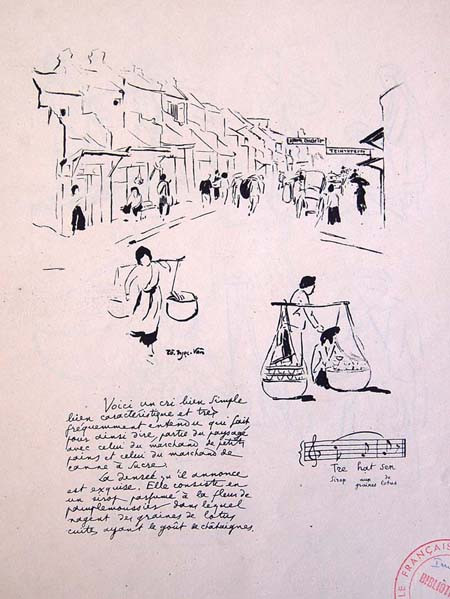 TEINTURERIE
Tô-Ngọc-Vân
Voici un cri bien simple
bien caractéristique et très
fréquemment entendu qui fait
pour ainsi dire, partie du paysage
avec celui du marchand de petits
pains et celui du marchand de
canne à sucre.
La denrée qu'il annonce
est exquise. Elle consiste en
un sirop parfumé à la fleur de
pamplemoussier dans lequel
nagent des graines de lotus
cuites ayant le goût de châtaignes.
Tre hạt sen
Sirop aux graines de lotus
LE FRANÇAIS
BIBLIOT